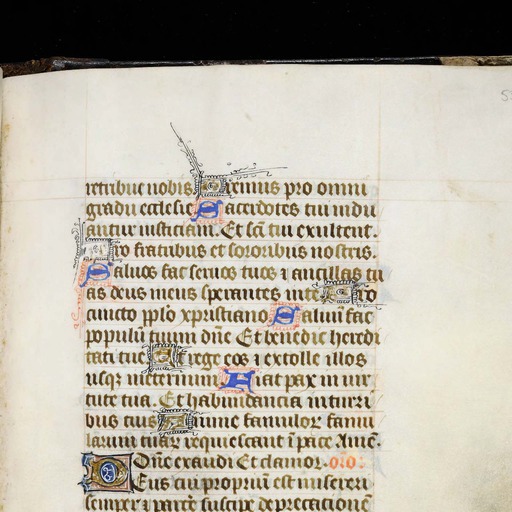 retribue nobis. Oremus pro omni
gradu ecclesie Sacerdotes tui indu
antur iusticiam. Et sc̄i tui exultent.
Pro fratribus et sororibus nostris.
Saluos fac seruos tuos ⁊ ancillas tu
as deus meus sperantes in te. Pro
cuncto pplō xpristiano Saluū fac
populū tuū dn̄e Et benedic heredi
tati tue Et rege eos ⁊ extolle illos
usqꝫ ineternum Fiat pax in uir
tute tua. Et habundancia in turri
bus tuis Anime famuloꝝ famu
larum tuaꝝ requiescant ī pace Amē.
Dn̄e exaudi Et clamor. or̄o.
Deus cui propriū est misereri
semper ⁊ parcē suscipe deprecationē